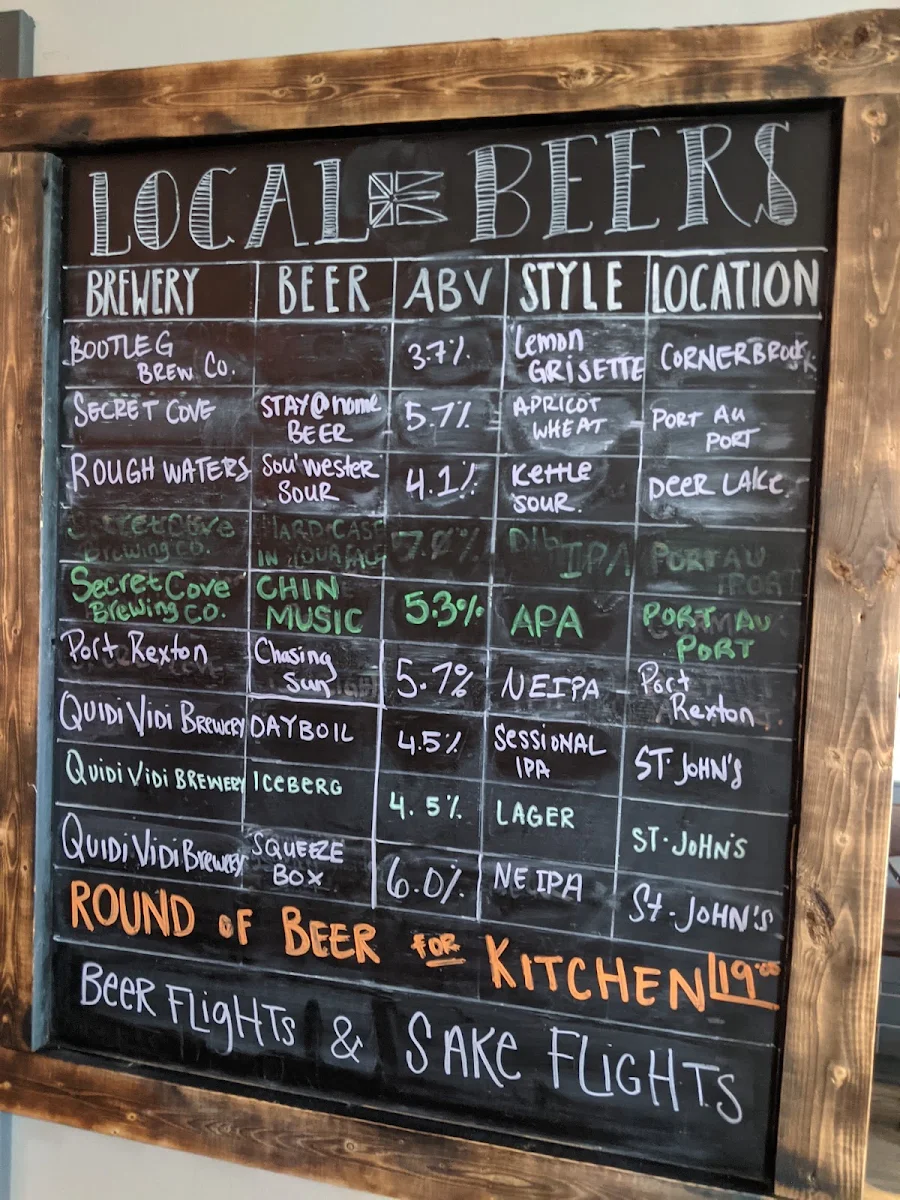 LOCAL BEERS
BREWERY BEER ABV STYLE LOCATION
BOOTLEG
BREW CO.
3.7%
Lemon
GRISETTE
CORNERBROOK
SECRET COVE
STAY@home
BEER
5.7%
APRICOT
WHEAT
PORT AU
PORT
ROUGH WATERS
SOU'WESTER
SOUR
4.1%
KETTLE
SOUR
DEER LAKE
Secret Cove
Brewing Co.
HARD CASE
IN YOUR FACE
IPA
PORT AU
PORT
Secret Cove
Brewing CO.
CHIN
MUSIC
5.3%
APA
PORT AU
PORT
Port Rexton
Chasing
Sun
5.7%
NEIPA
Port
Rexton
QUIDI VIDI BREWERY
DAYBOIL
4.5%
SESSIONAL
IPA
ST. JOHN'S
QUIDI VIDI BREWERY
ICEBERG
4.5%
LAGER
ST. JOHN'S
QUIDI VIDI Brewery
SQUEEZE
BOX
6.0%
NEIPA
St. JOHN'S
ROUND OF BEER FOR KITCHEN 19.00
BEER FLIGHTS & SAKE FLIGHTS